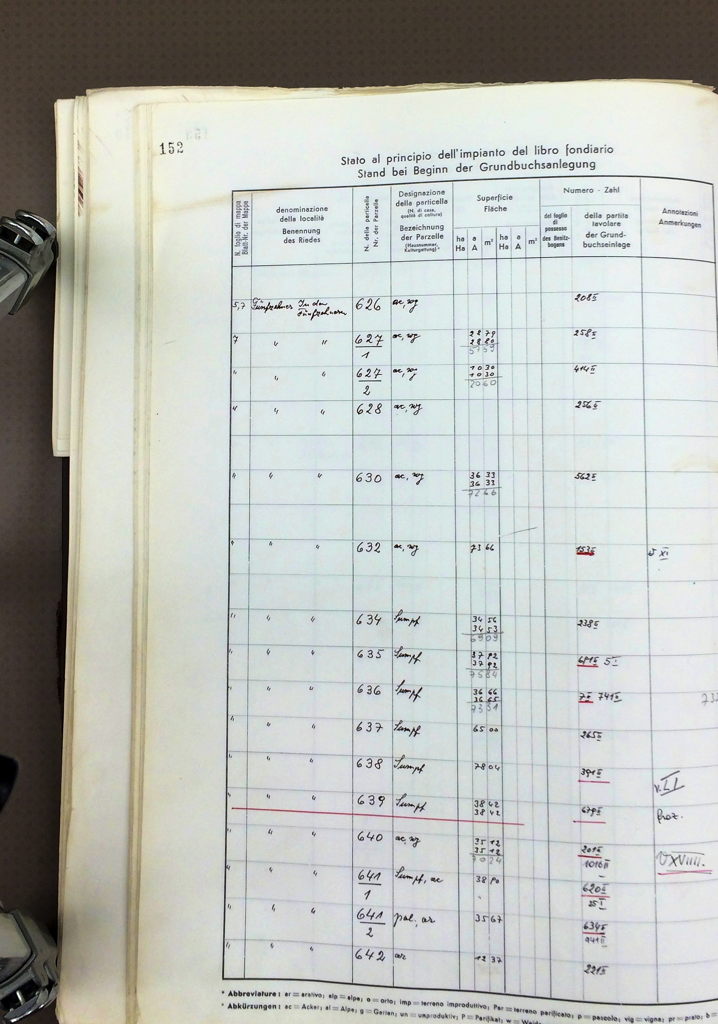 152
Stato al principio dell'impianto del libro fondiario
Stand bei Beginn der Grundbuchsanlegung
N. foglio di mappa
Blatt-Nr. der Mappe
denominazione
della località
Benennung
des Riedes
N. della particella
Nr. der Parzelle
Designazione
della particella
(N. di casa,
qualità di coltura)
Bezeichnung
der Parzelle
(Hausnummer,
Kulturgattung)*
Superficie
Fläche
ha Ha a A m² ha Ha a A m²
Numero - Zahl
del foglio
di
possesso
des Besitz-
bogens
della partita
tavolare
der Grund-
buchseinlage
Annotazioni
Anmerkungen
5,7 Fünfzehner In den Fünfzehnern 626 ac, wg 208 II
7 " " 627/1 ac, wg 258 II
" " " 627/2 ac, wg 10 30 414 II
10 30
20 60
" " " 628 ac, wg 256 II
" " " 630 ac, wg 36 33 562 II
36 33
72 66
" " " 632 ac, wg 73 66 XI
" " " 634 Sumpf 34 56 238 II
34 53
69 09
" " " 635 Sumpf 37 92 5 I
37 92
75 84
" " " 636 Sumpf 36 66 7 II 741 II
36 65
73 31
" " " 637 Sumpf 65 00 265 II
" " " 638 Sumpf 78 04 391 II
v. LI
" " " 639 Sumpf 38 42 679 II
38 42
" " " 640 ac, wg 35 12 201 II
35 12 1016 II
70 24
V XVIIII.
" " " 641/1 Sumpf, ac 38 90 620 II
25 I
" " " 641/2 ar 35 67 634 II
941 II
" " " 642 ar 12 37 221 II
* Abbreviature: ar = arativo; alp = alpe; o = orto; imp = terreno improduttivo; Par = terreno parificato; p = pascolo; vig = vigna; pr = prato; b =
* Abkürzungen: ac = Acker; al = Alpe; g = Garten; un = unproduktiv; P = Parifikat; w =